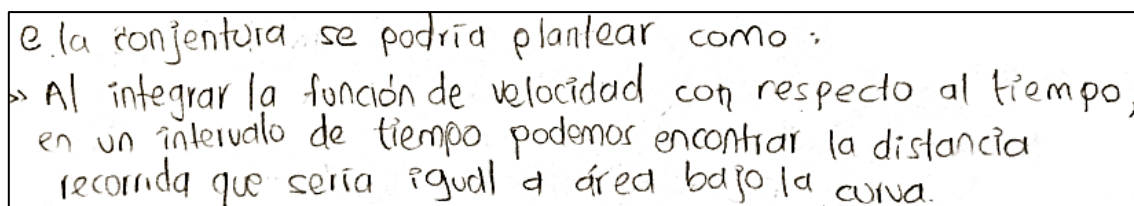 e. la conjentura se podría plantear como :
» Al integrar la función de velocidad con respecto al tiempo,
en un intervalo de tiempo podemos encontrar la distancia
recorrida que seria igual a área bajo la curva.